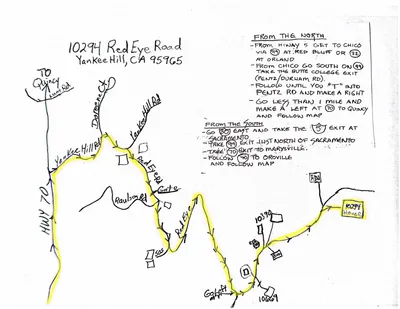 10294 Red Eye Road
Yankee Hill, CA 95965
FROM THE NORTH
-FROM HIWAY 5 GET TO CHICO
VIA 99 AT RED BLUFF OR 32
AT ORLAND
-FROM CHICO GO SOUTH ON 99
TAKE THE BUTTE COLLEGE EXIT
(PENTZ/DURHAM RD).
-FOLLOW UNTIL YOU "T" INTO
PENTZ RD AND MAKE A RIGHT
-GO LESS THAN 1 MILE AND
MAKE A LEFT AT 70 TO QUINCY
AND FOLLOW MAP
FROM THE SOUTH
-GO EAST AND TAKE THE 5 EXIT AT
SACRAMENTO
-TAKE 99 EXIT JUST NORTH OF SACRAMENTO
-TAKE 70 EXIT TO MARYSVILLE.
-FOLLOW 70 TO OROVILLE
AND FOLLOW MAP
TO
Quincy
Yankee Hill Rd
Yankee Hill Rd
Red Eye Rd
Gate
Red Eye
HWY 70
10294
House